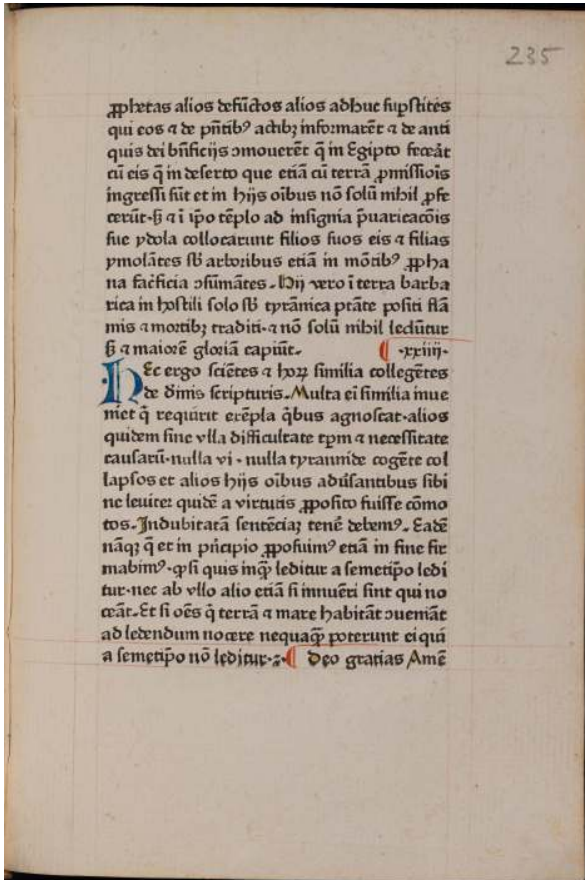 235
ꝓphetas alios defūctos alios adhuc suꝑstites
qui eos ⁊ de pn̄tibꝰ actibꝫ informarēt ⁊ de anti
quis dei bn̄ficijs ꝯmouerēt q̄ in Egipto feceāt
cū eis q̄ in deserto que etiā cū terrā ꝓmissiois
ingressi sūt et in hijs oībus nō solū nihil ꝓfe
cerūt·ẜ ⁊ ī ip̄o tēplo ad insignia p̄uaricacōis
sue ydola collocarunt filios suos eis ⁊ filias
ymolātes sb̄ arboribus etiā in mōtibꝰ ꝓpha
na sac̄ficia ꝯsūmātes. Hij vero ī terra barba
rica in hostili solo sb̄ tyrānica ptāte positi flā
mis ⁊ mortibꝫ traditi·⁊ nō solū nihil leduntur
ẜ ⁊ maiorē gloriā capiūt. ¶ ·xxiiij·
HEc ergo sciētes ⁊ hoꝝ similia collegētes
de diīnis scripturis. Multa ei similia inue
niet q̄ requirit exēpla q̄bus agnoscat·alios
quidem sine vlla difficultate tp̄m ⁊ necessitate
causarū·nulla vi·nulla tyrannide cogēte col
lapsos et alios hijs oībus adūsantibus sibi
ne leuiter quidē a virtutis ꝓposito fuisse cōmo
tos. Indubitatā sentēciaꝫ tenē debemꝰ. Eadē
nāqꝫ q̄ et in pn̄cipio ꝓposuimꝰ etiā in fine fir
mabimꝰ·ꝙ si quis inqꝫ leditur a semetip̄o ledi
tur·nec ab vllo alio etiā si innuēri sint qui no
ceāt. Et si oēs q̄ terrā ⁊ mare habitāt ꝯueniāt
ad ledendum nocere nequaqꝫ poterunt ei qui
a semetip̄o nō leditur·⁊· ¶ Deo gratias Amē